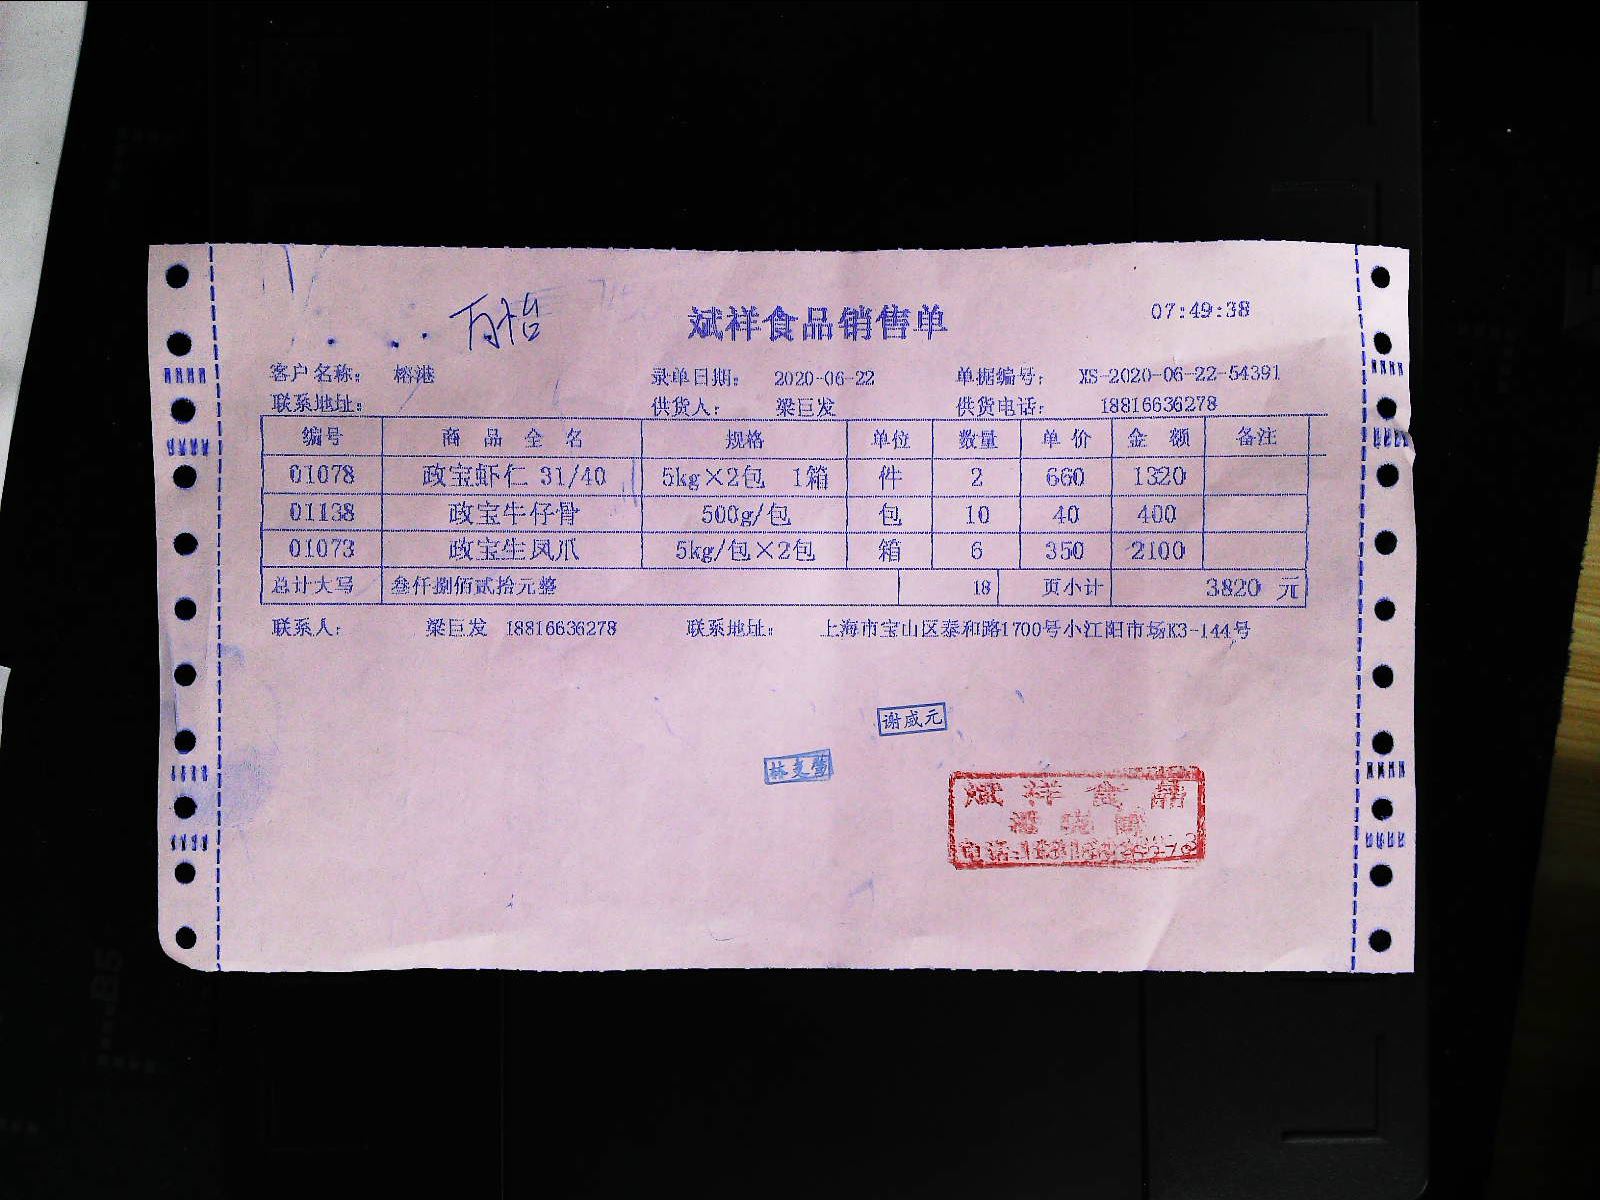 万怡
斌祥食品销售单 07:49:38
客户名称: 榕港 录单日期: 2020-06-22 单据编号: XS-2020-06-22-54391
联系地址: 供货人: 梁巨发 供货电话: 18816636278
编号 商品全名 规格 单位 数量 单价 金额 备注
01078 政宝虾仁 31/40 5kg×2包 1箱 件 2 660 1320
01138 政宝牛仔骨 500g/包 包 10 40 400
01073 政宝生凤爪 5kg/包×2包 箱 6 350 2100
总计大写 叁仟捌佰贰拾元整 18 页小计 3820 元
联系人: 梁巨发 18816636278 联系地址: 上海市宝山区泰和路1700号小江阳市场K3-144号
谢威元
斌祥食品